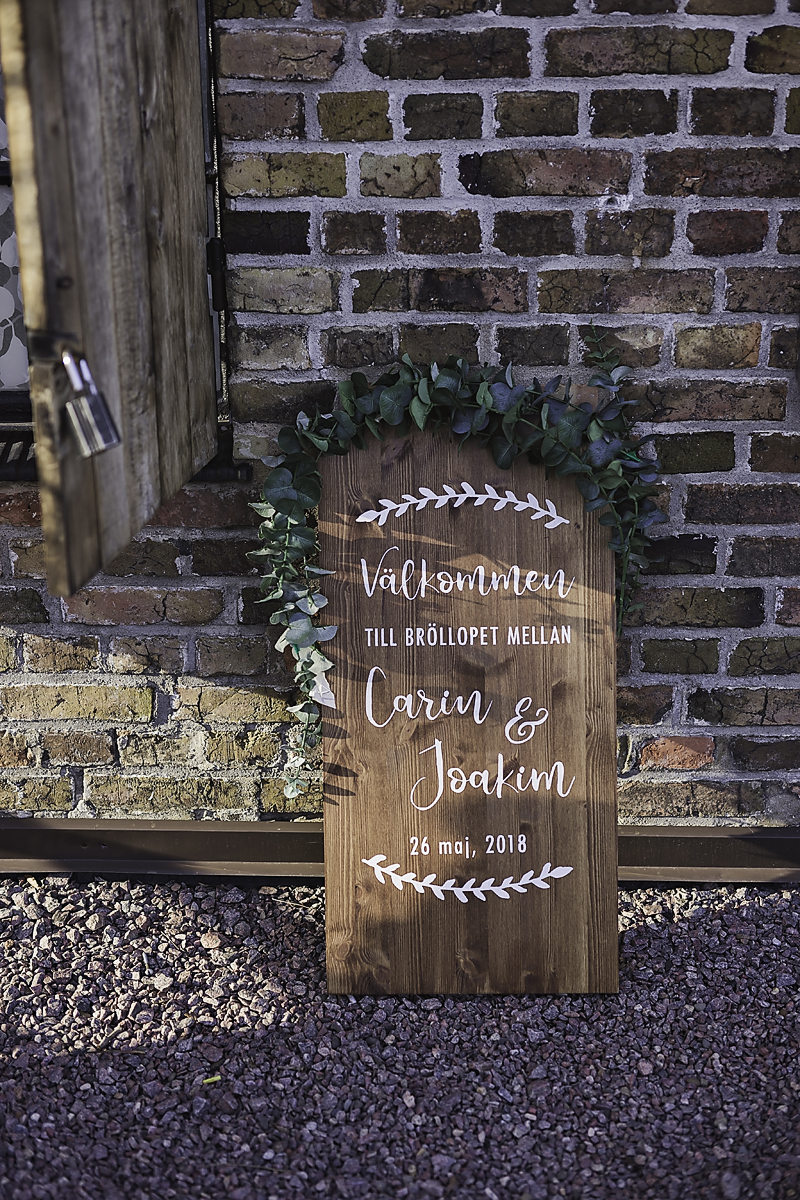 Välkommen
TILL BRÖLLOPET MELLAN
Carin &
Joakim
26 maj, 2018